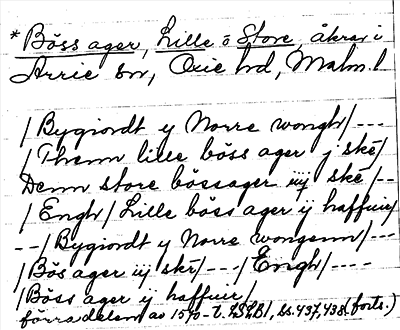 * Böss ager, Lille o Store, åkrar i
Arrie sn, Oxie hd, Malm. l
/Bygiordt y Norre wongh/---
/Thenn lille böss ager j skē/
Denn store bössager iij skē/--
/Engh/ Lille böss ager ij haffuir/
--/Bygiordt y Norre wongenn/---
/Bös ager iij skē/---/Engh/----
/Böss ager ij haffuir/
förra delen av 1570-t. ss. 437, 438 (forts.)